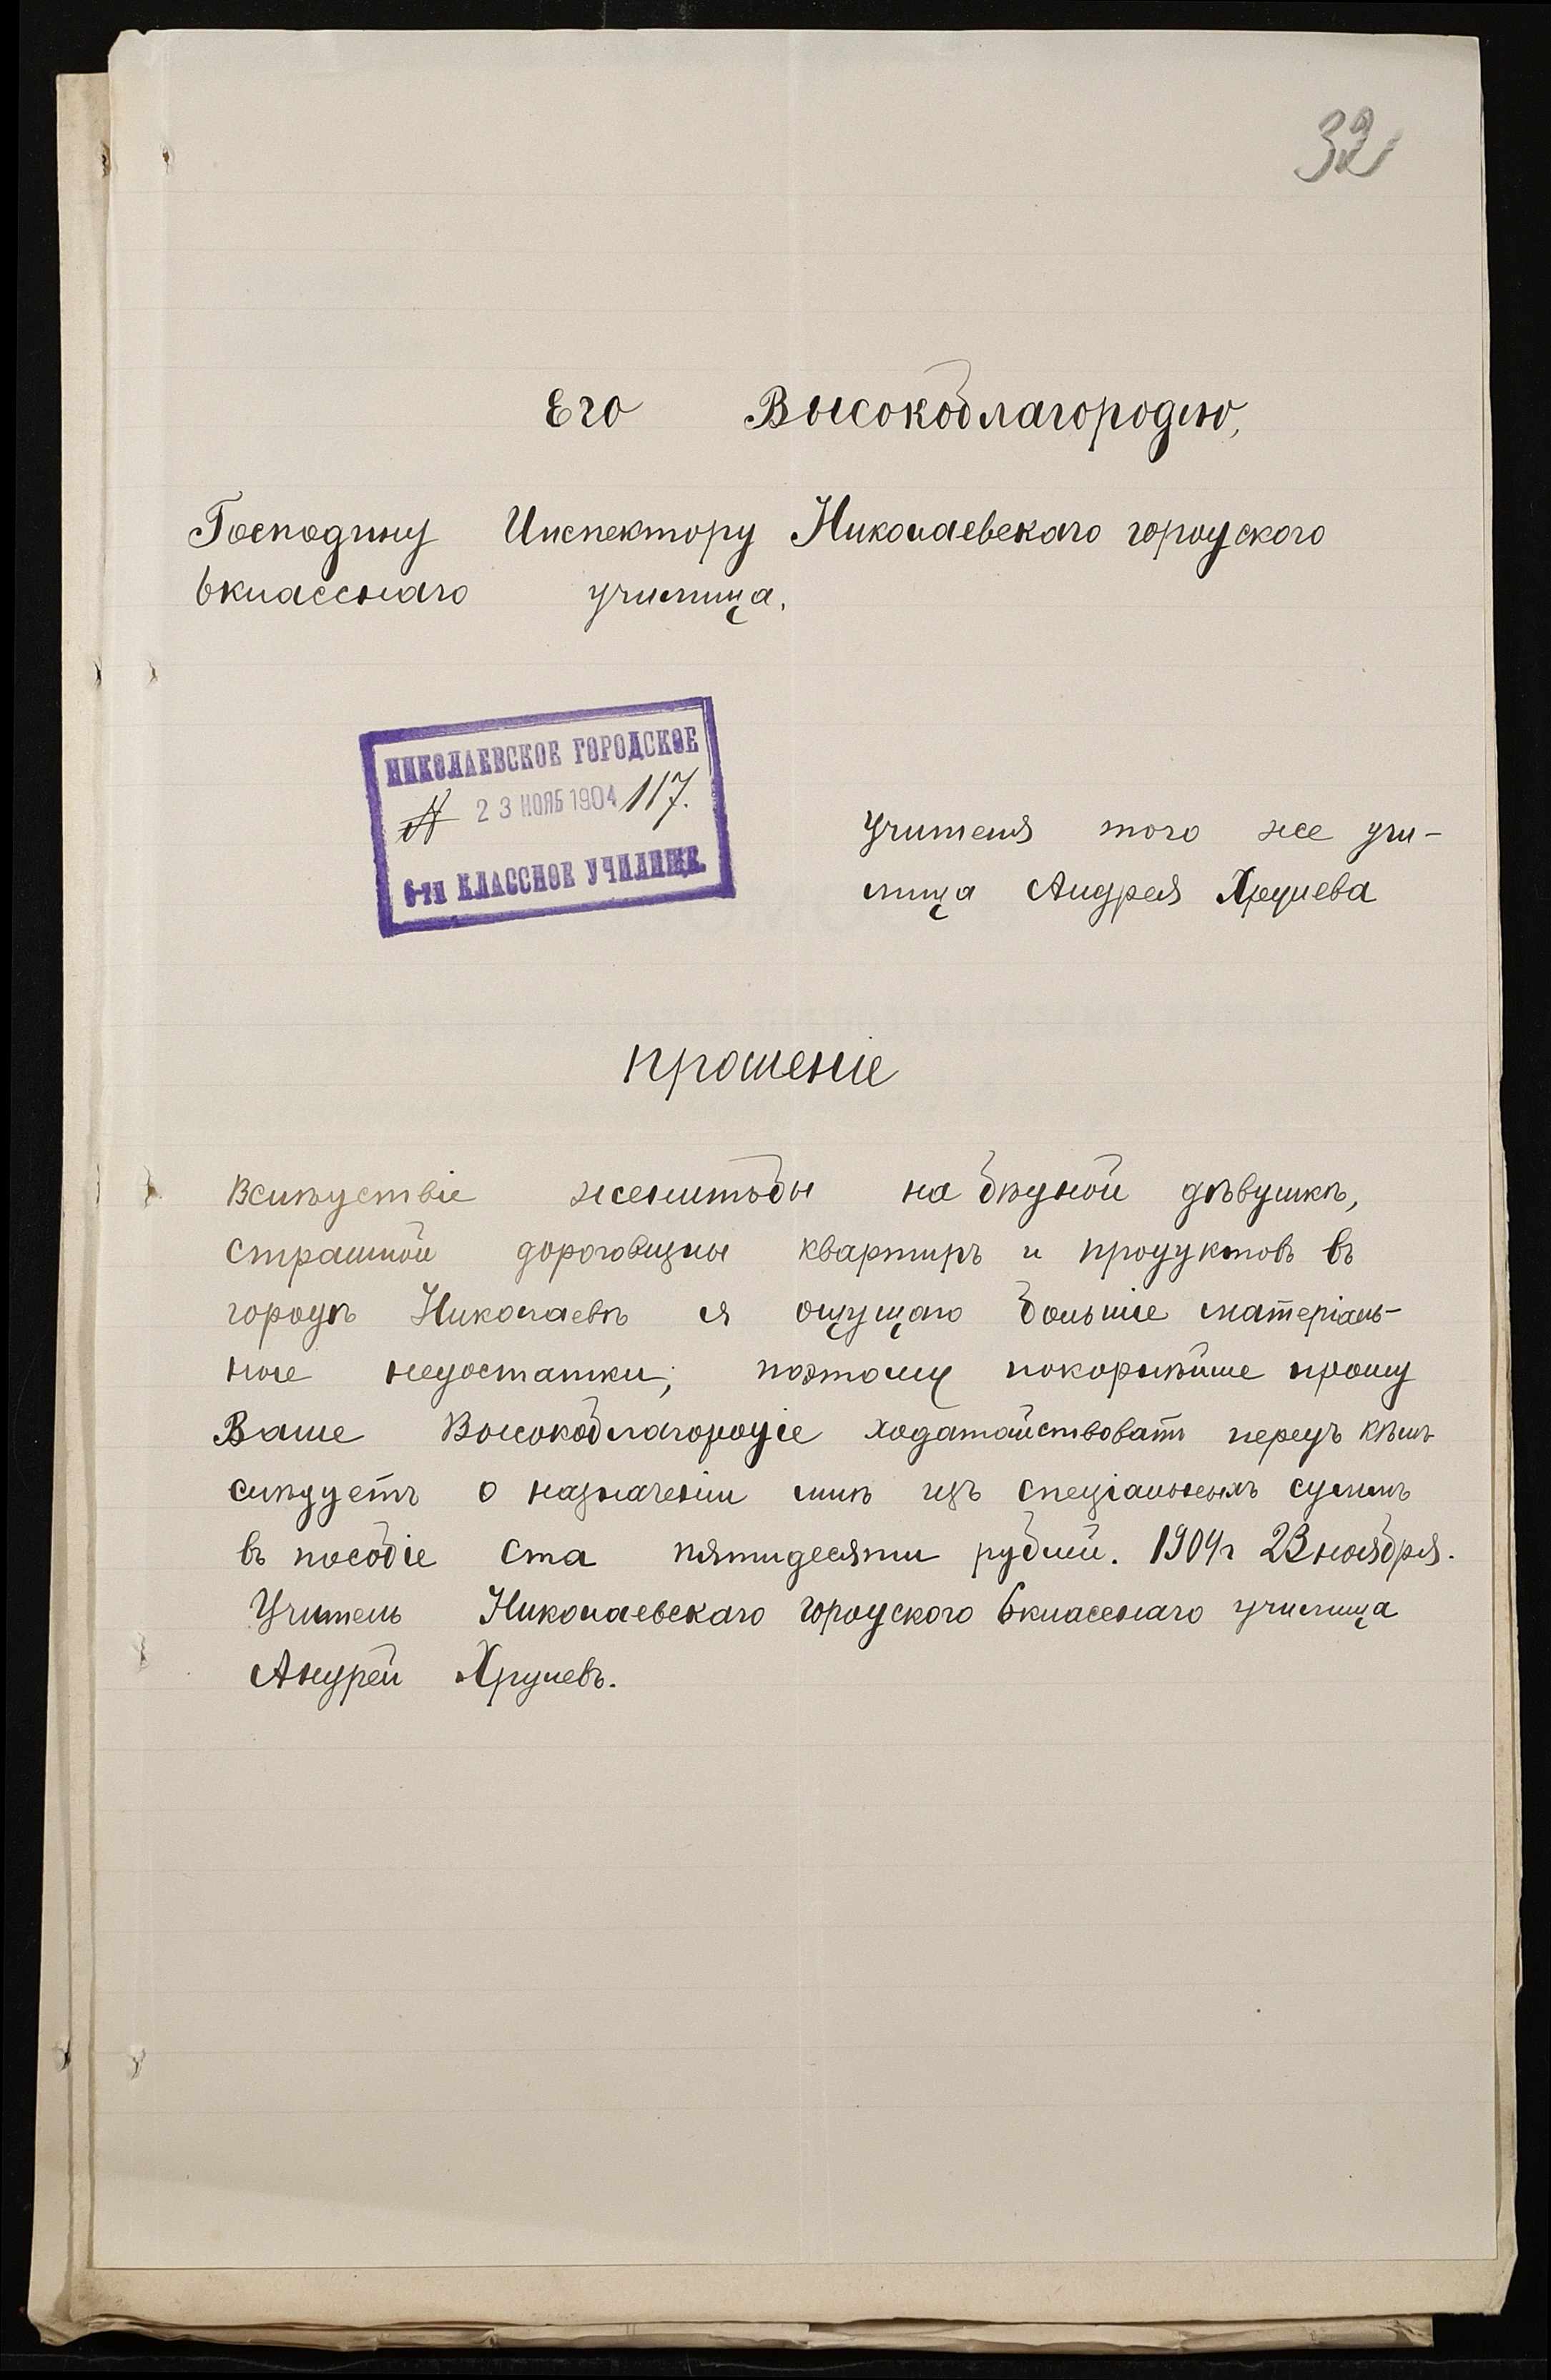 32
Его Высокоблагородiю,
Господину Инспектору Николаевскаго городского
6классного училища.
НИКОЛАЕВСКОЕ ГОРОДСКОЕ
№ 23 НОЯБ 1904 117.
6-ти КЛАССНОЕ УЧИЛИЩЕ.
Учителя того же учи-
лища Андрея Хрулева
прошенiе
Вслѣдствiе женитьбы на бѣдной дѣвушкѣ,
страшной дороговизны квартиръ и продуктовъ въ
городѣ Николаевѣ я ощущаю большiе матерiаль-
ные недостатки; поэтому покорнѣйше прошу
Ваше Высокоблагородiе ходатайствовать передъ кѣмъ
слѣдуетъ о назначенiи мнѣ изъ спецiальныхъ суммъ
въ пособiе ста пятидесяти рублей. 1904г 23 ноября.
Учитель Николаевскаго городского 6класснаго училища
Андрей Хрулевъ.